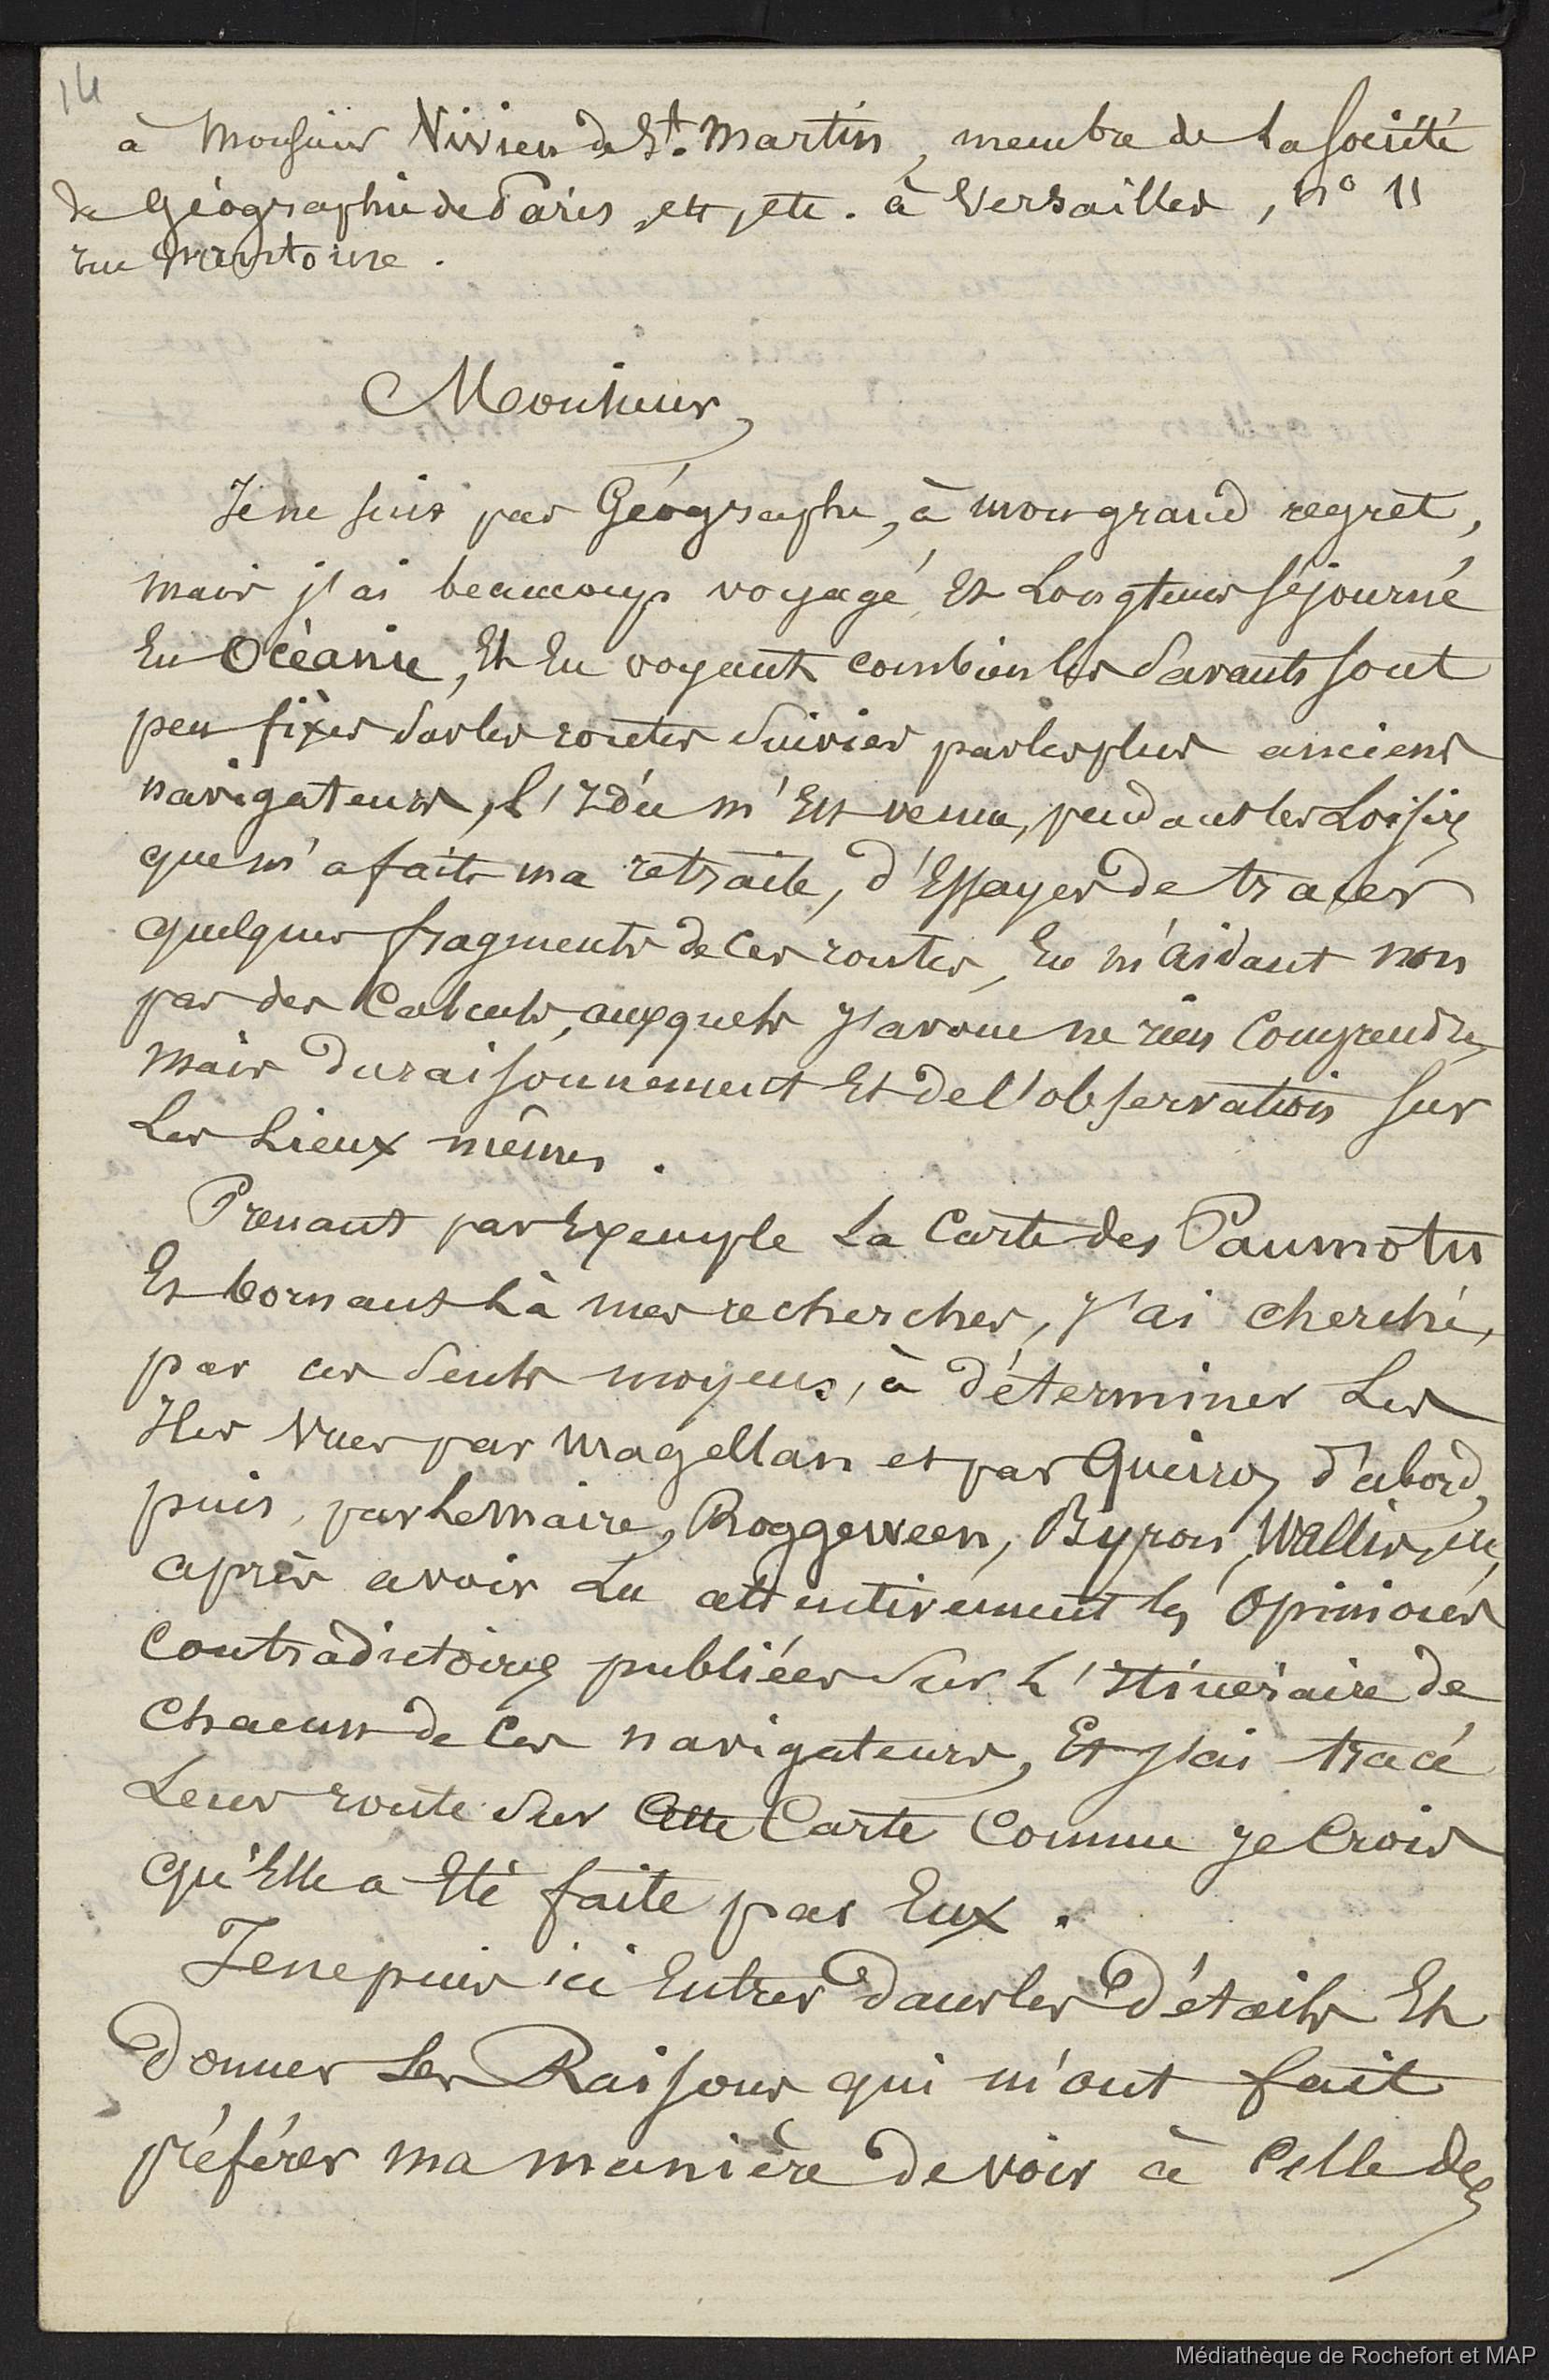 14
à Monsieur Vivien de St. Martin, membre de la Société
de Géographie de Paris, etc, etc. à Versailles, n° 11
rue
Monsieur,
Je ne suis pas Géographe, à mon grand regret,
mais j'ai beaucoup voyagé, et Longtems séjourné
En Océanie, Et En voyant combien les Savants sont
peu fixés sur les routes suivies par les plus anciens
navigateurs, l'Idée m'Est venue, pendant les Loisirs
que m'a faits ma retraite, d'Essayer de tracer
quelques fragments de ces routes, En m'aidant non
pas des Calculs, auxquels j'avoue ne rien Comprendre,
mais du raisonnement Et de l'observation sur
Les Lieux mêmes.
Prenant par Exemple La Carte des Paumotu
Et bornant Là mes recherches, j'ai cherché,
par ces seuls moyens, à déterminer Les
Iles vues par Magellan et par Queiroz d'abord,
puis, par Lemaire, Roggeween, Byron, Wallis, etc,
après avoir Lu attentivement les Opinions
Contradictoires publiées sur L'Itinéraire de
Chacun de Ces navigateurs, Et j'ai tracé
Leur route sur Cette Carte Comme je Crois
qu'Elle a Eté faite par Eux.
Je ne puis ici Entrer dans les Détails Et
Donner Les Raisons qui m'ont fait
préférer ma manière de voir à Celle des
Médiathèque de Rochefort et MAP